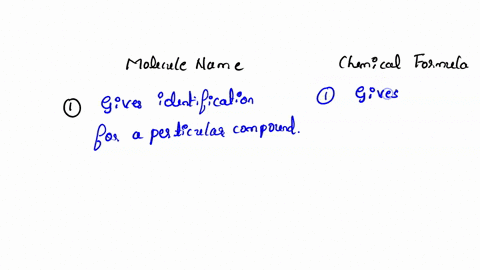 Molecule Name
Chemical Formula
① Gives identification
for a perticular compound.
① Gives